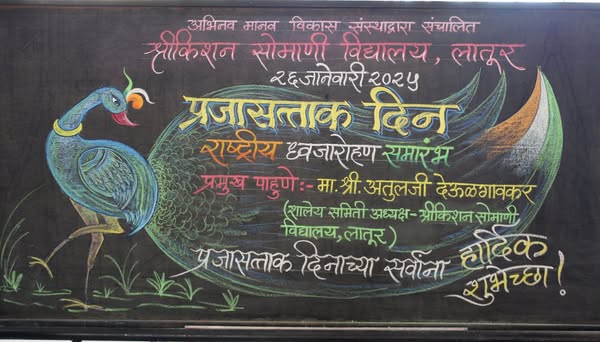 अभिनव मानव विकास संस्थाद्वारा संचालित
श्रीकिशन सोमाणी विद्यालय, लातूर
२६ जानेवारी २०२५
प्रजासत्ताक दिन
राष्ट्रीय ध्वजारोहण समारंभ
प्रमुख पाहुणे :- मा. श्री. अतुलजी देऊळगावकर
(शालेय समिती अध्यक्ष - श्रीकिशन सोमाणी
विद्यालय, लातूर)
प्रजासत्ताक दिनाच्या सर्वांना
हार्दिक
शुभेच्छा!